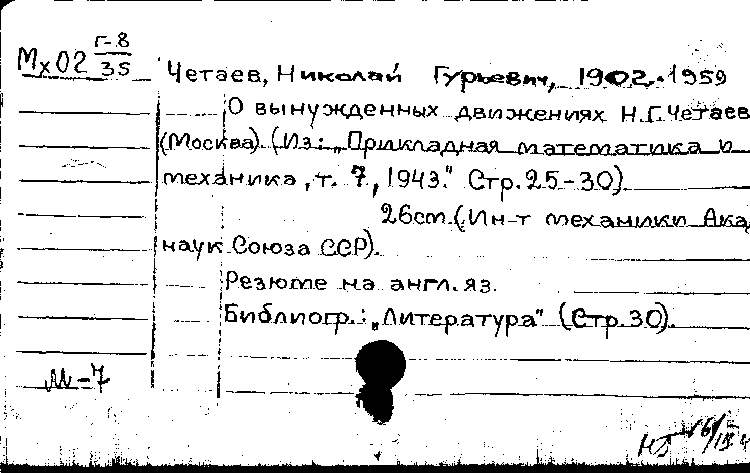 Мх02 Г-8
35
Четаев, Николай Гурьевич, 1902-1959
О вынужденных движениях Н.Г.Четаев
(Москва) (Из: „Прикладная математика и
механика, т. 7, 1943." Стр.25-30)
26cm.(Ин-т механики Ака
наук Союза ССР).
Резюме на англ. яз.
Библиогр.: „Литература" (Стр.30).
М-7